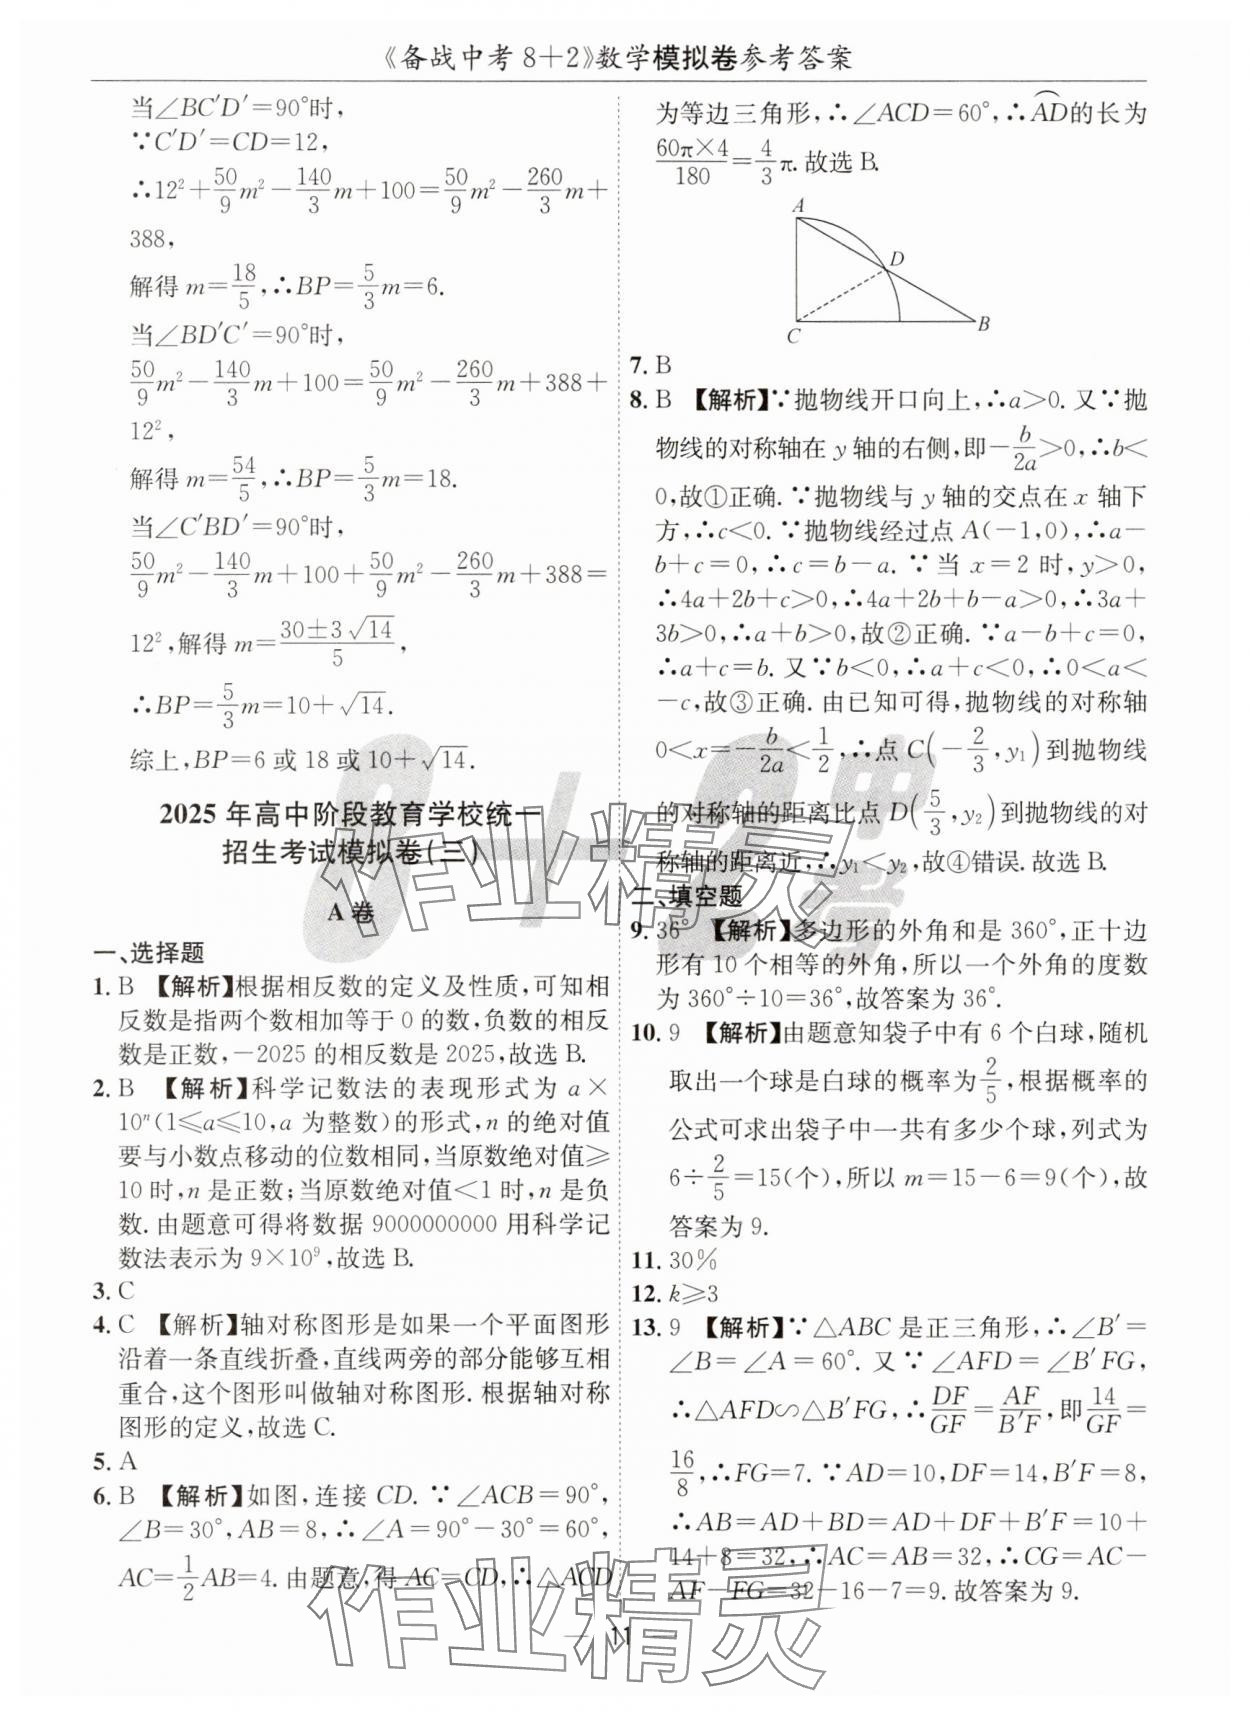 《备战中考8+2》数学模拟卷参考答案
当∠BC′D′=90°时,
∵C′D′=CD=12,
∴12²+50/9m²-140/3m+100=50/9m²-260/3m+
388,
解得m=18/5,∴BP=5/3m=6.
当∠BD′C′=90°时,
50/9m²-140/3m+100=50/9m²-260/3m+388+
12²,
解得m=54/5,∴BP=5/3m=18.
当∠C′BD′=90°时,
50/9m²-140/3m+100+50/9m²-260/3m+388=
12²,解得m=(30±3√14)/5,
∴BP=5/3m=10+√14.
综上,BP=6或18或10+√14.
2025年高中阶段教育学校统一
招生考试模拟卷(三)
A卷
一、选择题
1. B 【解析】根据相反数的定义及性质,可知相
反数是指两个数相加等于0的数,负数的相反
数是正数,-2025的相反数是2025,故选B.
2. B 【解析】科学记数法的表现形式为a×
10ⁿ(1≤a≤10,a为整数)的形式,n的绝对值
要与小数点移动的位数相同,当原数绝对值≥
10时,n是正数;当原数绝对值<1时,n是负
数.由题意可得将数据9000000000用科学记
数法表示为9×10⁹,故选B.
3. C
4. C 【解析】轴对称图形是如果一个平面图形
沿着一条直线折叠,直线两旁的部分能够互相
重合,这个图形叫做轴对称图形.根据轴对称
图形的定义,故选C.
5. A
6. B 【解析】如图,连接CD.∵∠ACB=90°,
∠B=30°,AB=8,∴∠A=90°-30°=60°,
AC=1/2AB=4.由题意,得AC=CD,∴△ACD
为等边三角形,∴∠ACD=60°,∴A͡D的长为
60π×4/180=4/3π.故选B.
A
D
C
B
7. B
8. B 【解析】∵抛物线开口向上,∴a>0.又∵抛
物线的对称轴在y轴的右侧,即-b/2a>0,∴b<
0,故①正确.∵抛物线与y轴的交点在x轴下
方,∴c<0.∵抛物线经过点A(-1,0),∴a-
b+c=0,∴c=b-a.∵当x=2时,y>0,
∴4a+2b+c>0,∴4a+2b+b-a>0,∴3a+
3b>0,∴a+b>0,故②正确.∵a-b+c=0,
∴a+c=b.又∵b<0,∴a+c<0,∴0<a<
-c,故③正确.由已知可得,抛物线的对称轴
0<x=-b/2a<1/2,∴点C(-2/3,y₁)到抛物线
的对称轴的距离比点D(5/3,y₂)到抛物线的对
称轴的距离近,∴y₁<y₂,故④错误.故选B.
二、填空题
9. 36° 【解析】多边形的外角和是360°,正十边
形有10个相等的外角,所以一个外角的度数
为360°÷10=36°,故答案为36°.
10. 9 【解析】由题意知袋子中有6个白球,随机
取出一个球是白球的概率为2/5,根据概率的
公式可求出袋子中一共有多少个球,列式为
6÷2/5=15(个),所以m=15-6=9(个),故
答案为9.
11. 30%
12. k≥3
13. 9 【解析】∵△ABC是正三角形,∴∠B′=
∠B=∠A=60°.又∵∠AFD=∠B′FG,
∴△AFD∽△B′FG,∴DF/GF=AF/B′F,即14/GF=
16/8,∴FG=7.∵AD=10,DF=14,B′F=8,
∴AB=AD+BD=AD+DF+B′F=10+
14+8=32,∴AC=AB=32,∴CG=AC-
AF-FG=32-16-7=9.故答案为9.
— 11 —
8+2中考
作业精灵
作业精灵